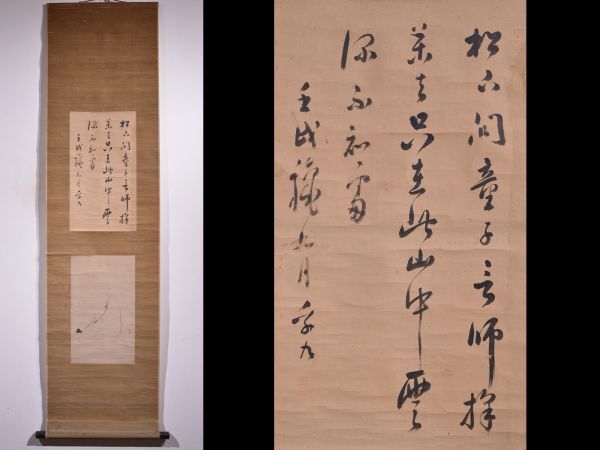 松下問童子言師採
藥去只在此山中雲
深不知處
壬戌穐九月